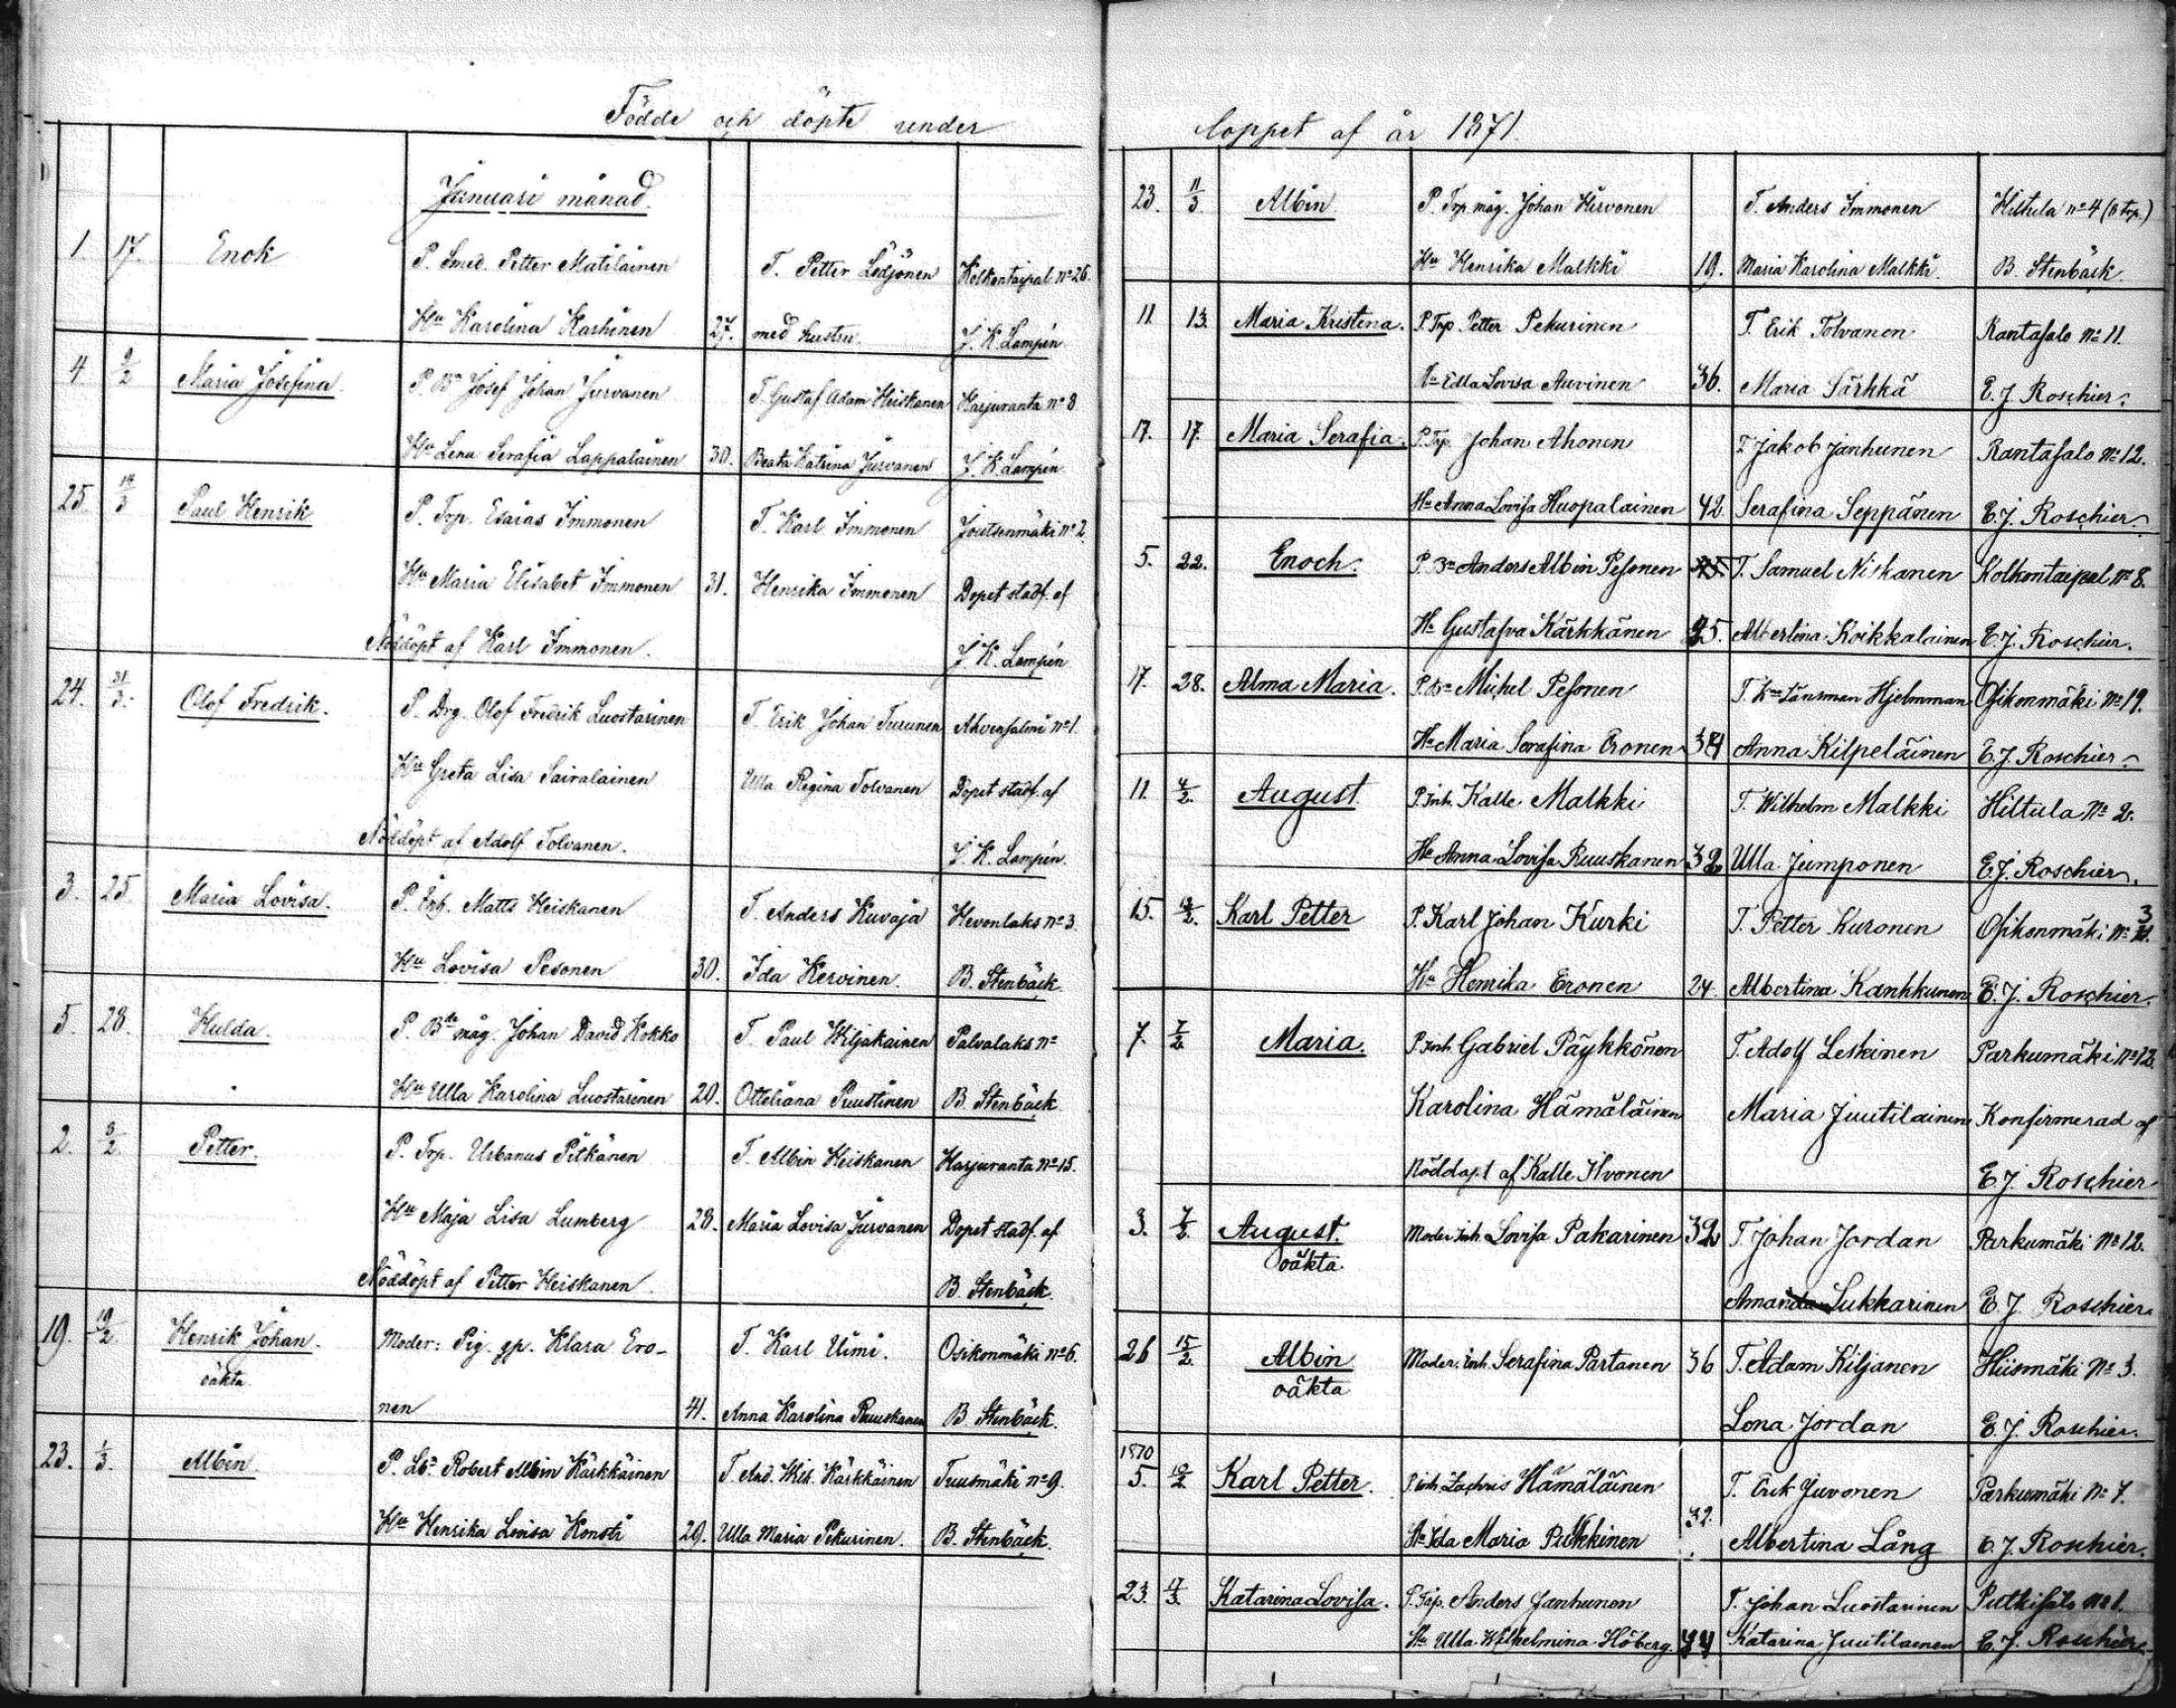 Födde och döpte under
Januari månad.
1. 17. Enok P. Smed. Petter Matilainen T. Petter Kolkontaipal No 26.
Hu Karolina Kashinen 27. med hustru. J. K. Lampén
4. 9/2 Maria Josefina. P. Bd Josef Johan Jurvanen T. Gustaf Adam Heiskanen Harjuranta No 8
Hu Lena Serafia Lappalainen 30. Beata Katrina Jurvanen J. K. Lampén
25. 14/3 Paul Henrik P. Trp. Esaias Immonen T. Karl Immonen Joutsenmäki No 2.
Hu Maria Elisabet Immonen 31. Henrika Immonen Dopet stadf. af
Nöddöpt af Karl Immonen. J. K. Lampén
24. 31/3. Olof Fredrik. P. Drg. Olof Fredrik Luostarinen T. Erik Johan Turunen Ahvensalmi No 1.
Hu Greta Lisa Sairalainen Ulla Regina Tolvanen Dopet stadf. af
Nöddöpt af Adolf Tolvanen. J. K. Lampén.
3. 25. Maria Lovisa. P. Inh. Matts Heiskanen T. Anders Kuvaja Hevonlaks No 3.
Hu Lovisa Pesonen 30. Ida Kervinen. B. Stenbäck.
5. 28. Hulda. P. Bde måg. Johan David Kokko T. Paul Wiljakainen Palvalaks No
Hu Ulla Karolina Luostarinen 20. Otteliana Puustinen B. Stenbäck
2. 3/2 Petter. P. Trp. Urbanus Pitkänen T. Albin Heiskanen Harjuranta No 15.
Hu Maja Lisa Lumberg 28. Maria Lovisa Jurvanen Dopet stadf. af
Nöddöpt af Petter Heiskanen. B. Stenbäck.
19. 19/2 Henrik Johan. Moder: Pig. gp. Klara Ero- T. Karl Uimi. Osikonmäki No 6.
oäkta.
nen 41. Anna Karolina Ruuskanen B. Stenbäck.
23. 1/3. Albin. P. Lbd Robert Albin Kärkkäinen T. And. Wilh. Kärkkäinen Tuusmäki No 9.
Hu Henrika Lovisa Konsti 29. Ulla Maria Pekurinen. B. Stenbäck.
loppet af år 1871.
23. 11/3 Albin P. Trp. måg. Johan Hirvonen T. Anders Immonen Hiltula No 4
Hu Henrika Malkki 19. Maria Karolina Malkki. B. Stenbäck.
11. 13. Maria Kristina. P. Trp. Petter Pekurinen T. Erik Tolvanen Rantasalo No 11.
Hu Edla Lovisa Auvinen 36. Maria Särkkä E. J. Roschier.
17. 17. Maria Serafia. P. Trp. Johan Ahonen T. Jakob Janhunen Rantasalo No 12.
Hu Anna Lovisa Huopalainen 42. Serafina Seppänen E. J. Roschier.
5. 22. Enoch. P. Bd Anders Albin Pesonen T. Samuel Niskanen Kolkontaipal No 8.
Hu Gustafva Kärkkänen 25. Albertina Koikkalainen E. J. Roschier.
17. 28. Alma Maria. P. Bd Michel Pesonen T. Länsman Hjelmman Osikonmäki No 19.
Hu Maria Serafina Eronen 34 Anna Kilpeläinen E. J. Roschier.
11. 4/2. August P. Inh. Kalle Malkki T. Wilhelm Malkki Hiltula No 2.
Hu Anna Lovisa Ruuskanen 32 Ulla Jumponen E. J. Roschier.
15. 12/2. Karl Petter P. Karl Johan Kurki T. Petter Kuronen Osikonmäki No 3
Hu Henrika Eronen 24. Albertina Kankkunen E. J. Roschier.
7. 7/2 Maria. P. Inh. Gabriel Päykkönen T. Adolf Leskinen Parkumäki No 12.
Karolina Hämäläinen Maria Juutilainen Konfirmerad af
Nöddöpt af Kalle Ikvonen E. J. Roschier
3. 7/2. August. Moder Inh. Lovisa Pakarinen 32 T. Johan Jordan Parkumäki No 12.
oäkta.
Amanda Lukkarinen E. J. Roschier.
26 15/2 Albin Moder. Inh. Serafina Partanen 36 T. Adam Kiljanen Hiismäki No 3.
oäkta
Lena Jordan E. J. Roschier.
1870
5. 12/2 Karl Petter. P. Inh. Zachris Hämäläinen T. Erik Juvonen Parkumäki No 7.
Hu Ida Maria Pulkkinen 32. Albertina Lång E. J. Roschier.
23. 17/3. Katarina Lovisa. P. Trp. Anders Janhunen T. Johan Luostarinen Putkisalo No 1.
Hu Ulla Wilhelmina Höberg. 44 Katarina Juutilainen E. J. Roschier.